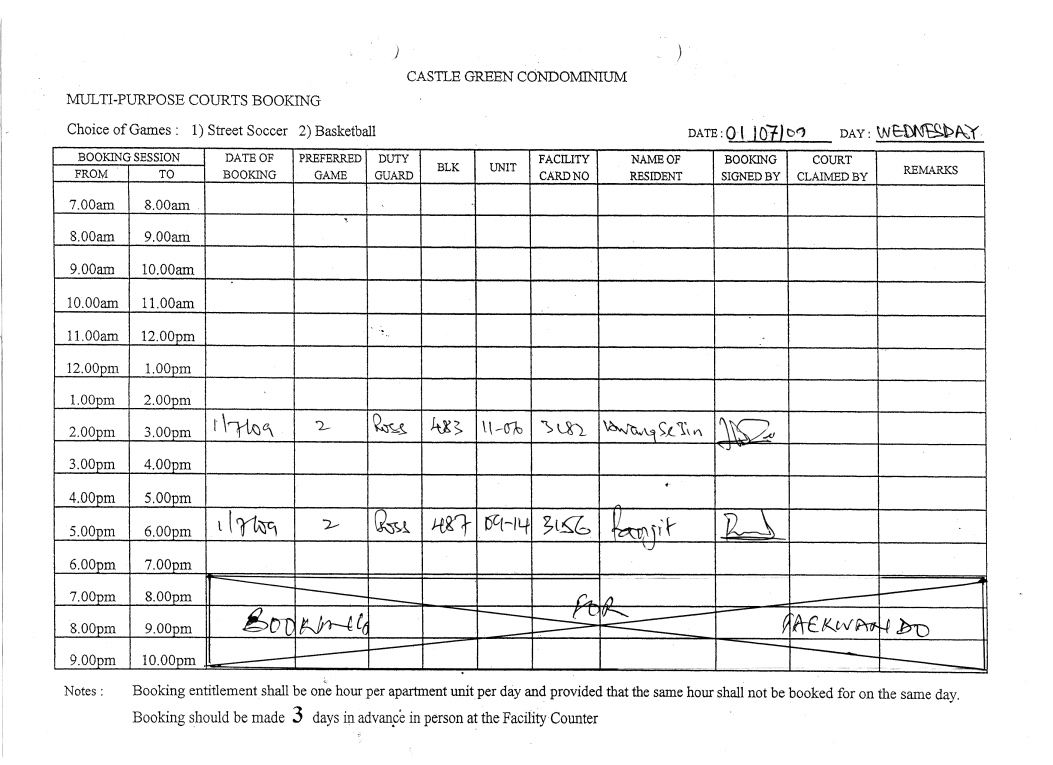 CASTLE GREEN CONDOMINIUM
MULTI-PURPOSE COURTS BOOKING
Choice of Games : 1) Street Soccer 2) Basketball DATE : 01/07/09 DAY : WEDNESDAY
BOOKING SESSION DATE OF BOOKING PREFERRED GAME DUTY GUARD BLK UNIT FACILITY CARD NO NAME OF RESIDENT BOOKING SIGNED BY COURT CLAIMED BY REMARKS
FROM TO
7.00am 8.00am
8.00am 9.00am
9.00am 10.00am
10.00am 11.00am
11.00am 12.00pm
12.00pm 1.00pm
1.00pm 2.00pm
2.00pm 3.00pm 1/7/09 2 Ross 483 11-06 3182 Hwang Se Jin
3.00pm 4.00pm
4.00pm 5.00pm
5.00pm 6.00pm 1/7/09 2 Ross 487 09-14 3156
6.00pm 7.00pm
7.00pm 8.00pm FOR
8.00pm 9.00pm BOOKING TAEKWANDO
9.00pm 10.00pm
Notes : Booking entitlement shall be one hour per apartment unit per day and provided that the same hour shall not be booked for on the same day.
Booking should be made 3 days in advance in person at the Facility Counter